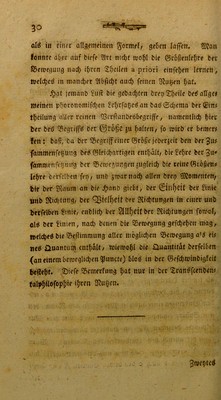 30
als in einer allgemeinen Formel, geben lassen. Man
konnte aber auf diese Art nicht wohl die Größenlehre der
Bewegung nach ihren Theilen a priori einsehen lernen,
welches in mancher Absicht auch seinen Nutzen hat.
Hat jemand Lust die gedachten drey Theile des allge
meinen phoronomischen Lehrsatzes an das Schema der Ein-
theilung aller reinen Verstandesbegriffe, namentlich hier
der des Begriffs der Größe zu halten, so wird er bemer-
ken: daß, da der Begriff einer Größe jederzeit den der Zu-
sammensetzung des Gleichartigen enthält, die Lehre der Zu-
sammensetzung der Bewegungen zugleich die reine Größen-
lehre derselben sey, und zwar nach allen drey Momenten,
die der Raum an die Hand giebt, der Einheit der Linie
und Richtung, der Vielheit der Richtungen in einer und
derselben Linie, endlich der Allheit der Richtungen sowol,
als der Linien, nach denen die Bewegung geschehen mag,
welches die Bestimmung aller möglichen Bewegung als ei-
nes Quantum enthält, wiewohl die Quantität derselben
(an einem beweglichen Puncte) blos in der Geschwindigkeit
besteht. Diese Bemerkung hat nur in der Transscenden-
talphilosophie ihren Nutzen.
Zweytes